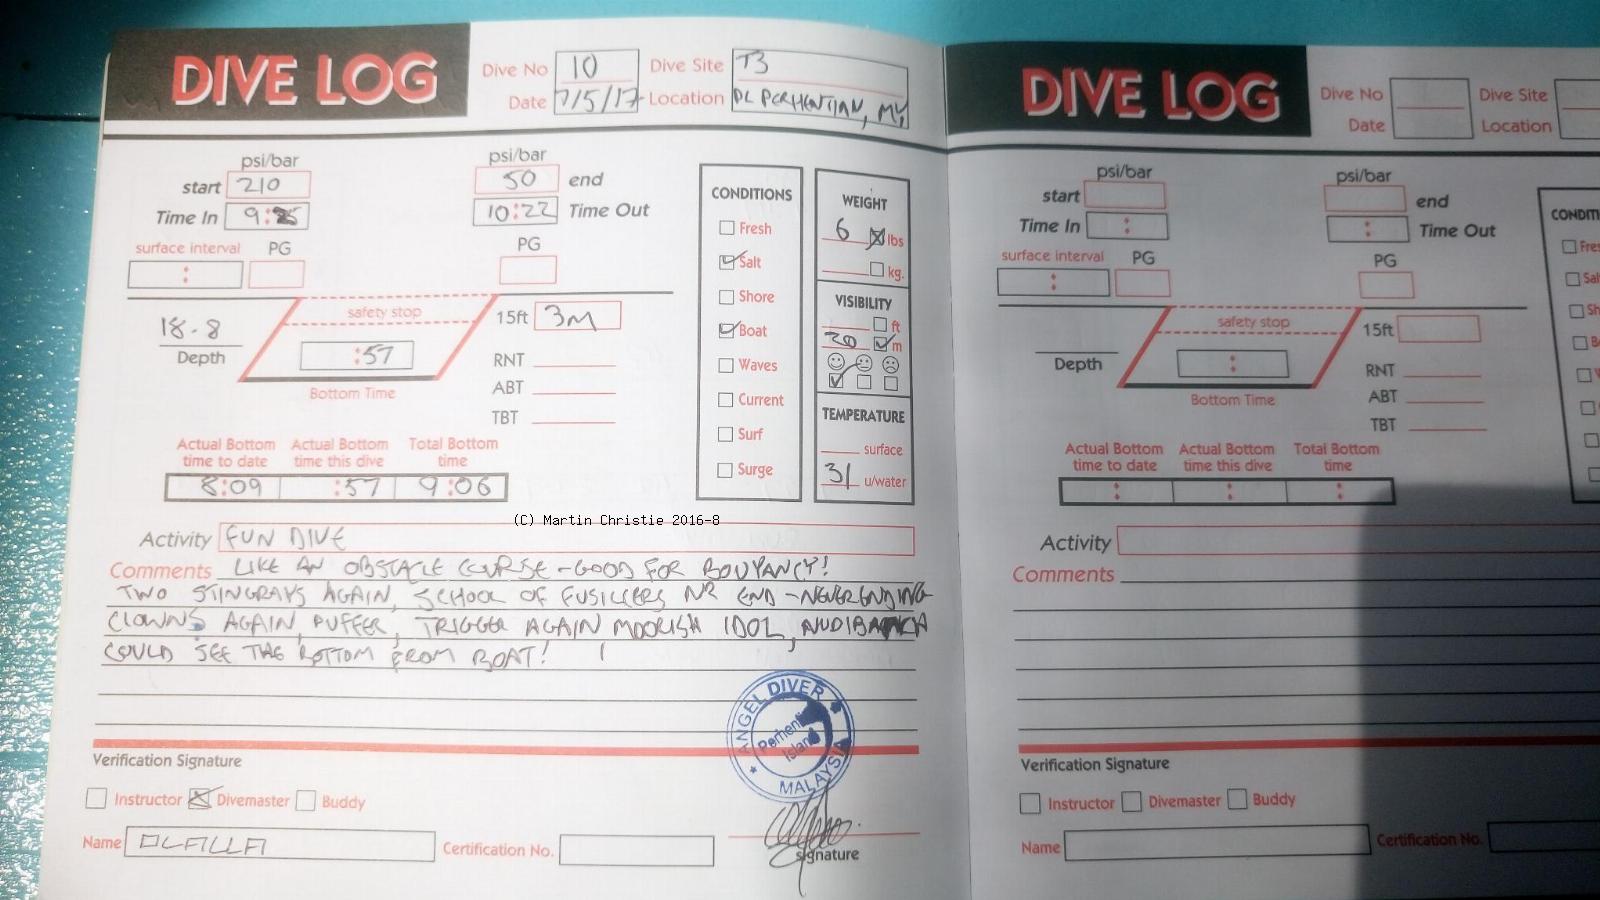 DIVE LOG
Dive No 10 Dive Site T3
Date 7/5/17 Location PL PERHENTIAN, MY,
psi/bar psi/bar
start 210 50 end
Time In 9: 10:22 Time Out
surface interval PG PG
:
safety stop 15ft 3M
18.8 Depth :57 RNT
Bottom Time ABT
TBT
Actual Bottom time to date Actual Bottom time this dive Total Bottom time
8:09 :57 9:06
CONDITIONS
Fresh
Salt
Shore
Boat
Waves
Current
Surf
Surge
WEIGHT
6 lbs
kg.
VISIBILITY
ft
20 m
TEMPERATURE
surface
31 u/water
(C) Martin Christie 2016-8
Activity FUN DIVE
Comments LIKE AN OBSTACLE COURSE - GOOD FOR BOUYANCY!
TWO STINGRAYS AGAIN, SCHOOL OF FUSILLERS NR END - NEVERENDING
CLOWNS AGAIN, PUFFER, TRIGGER AGAIN MOORISH IDOL,
COULD SEE THE BOTTOM FROM BOAT!
ANGEL DIVER
Perhentian Island
MALAYSIA
Verification Signature
Instructor Divemaster Buddy
Name Certification No. signature
DIVE LOG
Dive No Dive Site
Date Location
psi/bar psi/bar
start end
Time In : : Time Out
surface interval PG PG
:
safety stop 15ft
Depth : RNT
Bottom Time ABT
TBT
Actual Bottom time to date Actual Bottom time this dive Total Bottom time
: : :
CONDITI
Fre
Sal
Sh
B
Activity
Comments
Verification Signature
Instructor Divemaster Buddy
Name Certification No.